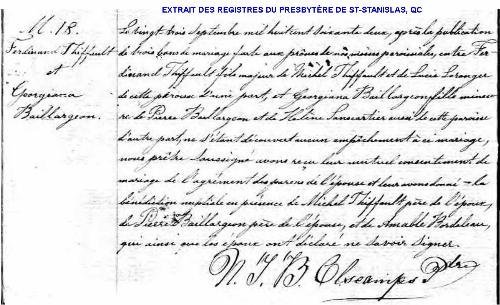 EXTRAIT DES REGISTRES DU PRESBYTÈRE DE ST-STANISLAS, QC
M. 18.
Ferdinand Thiffault
et
Georgiana
Baillargeon.
Le vingt trois Septembre mil huit cent soixante deux, après la publication
de trois bans de mariage faite aux prônes de nos messes paroissiales, entre Fer-
dinand Thiffault fils majeur de Michel Thiffault et de Lucie Loranger
de cette paroisse d'une part, et Georgiana Baillargeon, fille mineu-
re de Pierre Baillargeon et de Lancartier aussi de cette paroisse
d'autre part, ne s'étant découvert aucun empêchement à ce mariage,
nous prêtre soussigné avons reçu leur mutuel consentement de
mariage de l'agrément des parens de l'épouse et leur avons donné la
bénédiction nuptiale en présence de Michel Thiffault père de l'époux,
de Pierre Baillargeon père de l'épouse, et de Amable Bordeleau,
qui ainsi que les époux ont déclaré ne savoir signer.
N. J. B. Ptre